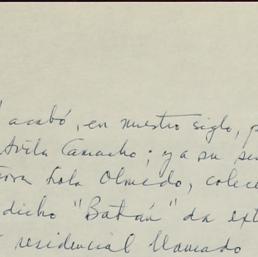 acabó, en nuestro siglo, p
Avila Camacho; y a su se
ora Lola Olmedo, colec
dicho "Batán" da ext
residencial llamado